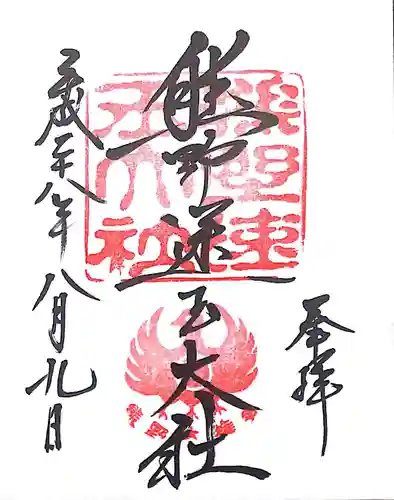 奉拝
熊野速玉大社
平成二十八年八月九日
熊野速玉大社